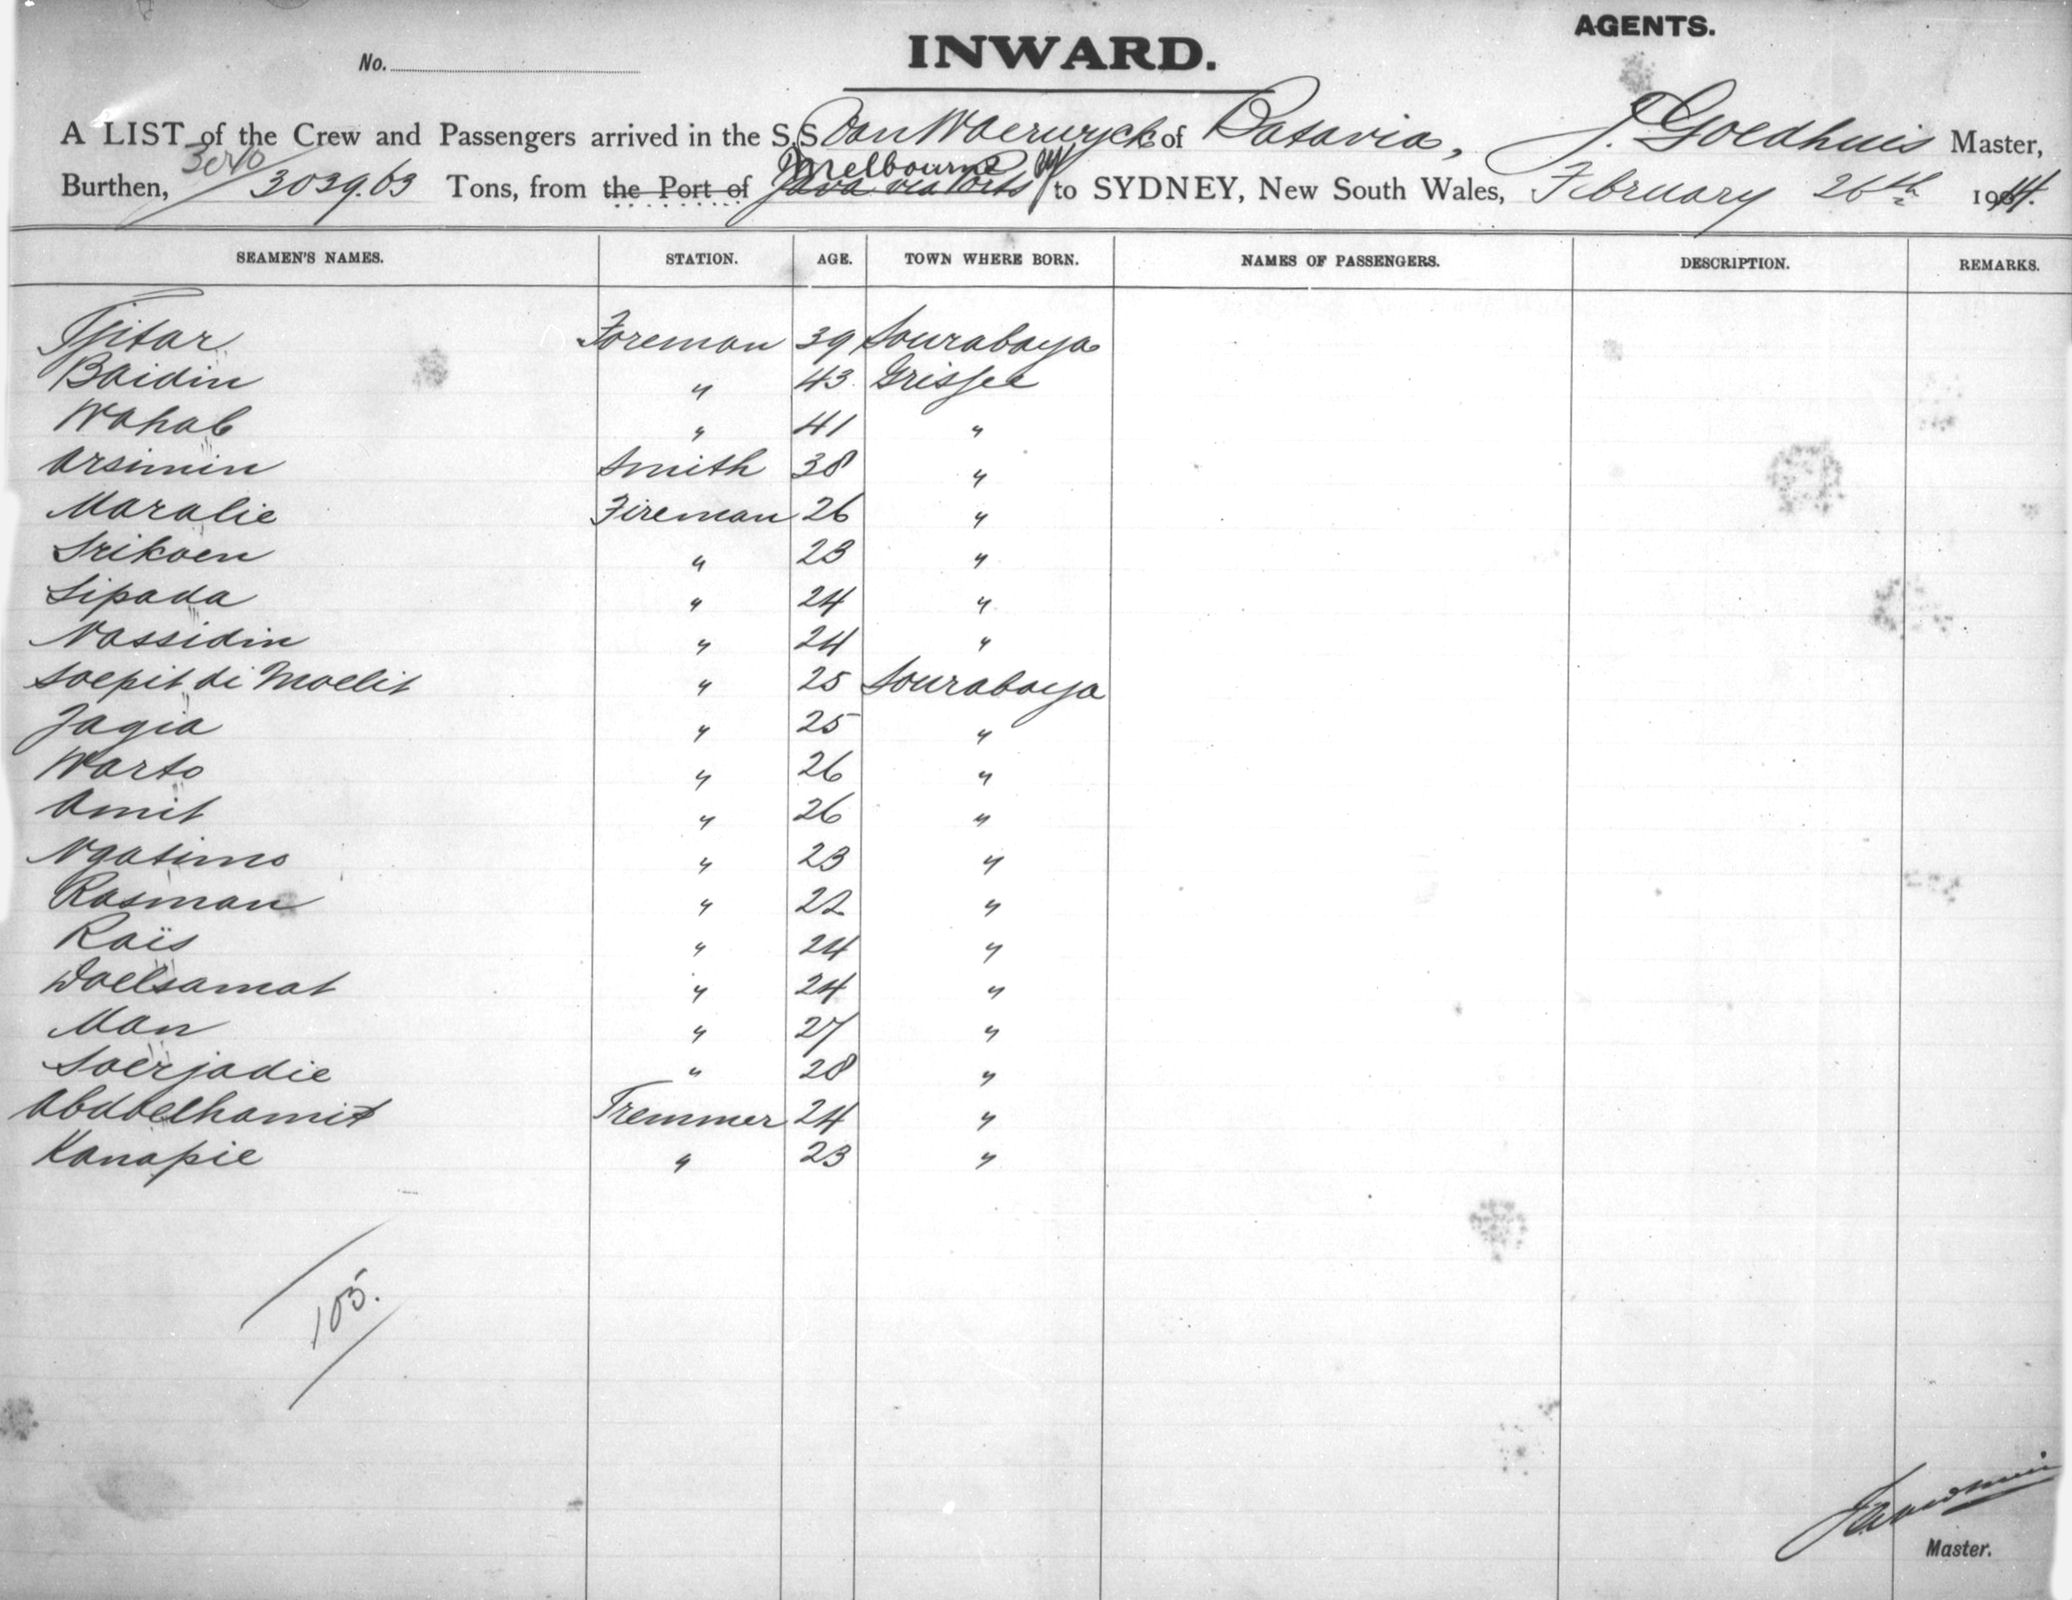 AGENTS.
INWARD.
No.
A LIST of the Crew and Passengers arrived in the S.S Van Waerwyck of Batavia, J. Goedhuis Master,
3040
Melbourne
Burthen, 3039.63 Tons, from the Port of Java via Ports to SYDNEY, New South Wales, February 26th 1914.
SEAMEN'S NAMES. STATION. AGE. TOWN WHERE BORN. NAMES OF PASSENGERS. DESCRIPTION. REMARKS.
Tjitar Foreman 39 Sourabaya
Baidin " 43 Grissee
Wahab " 41 "
Arsimin Smith 38 "
Maralie Fireman 26 "
Srikoen " 23 "
Sipada " 24 "
Nassidin " 24 "
Soepit di Moelit " 25 Sourabaya
Jagia " 25 "
Warto " 26 "
Amit " 26 "
Ngatimo " 23 "
Rasman " 22 "
Raïs " 24 "
Doelsamat " 24 "
Man " 27 "
Soerjadie " 28 "
Abdoelhamit Tremmer 24 "
Kanapie " 23 "
105.
Master.